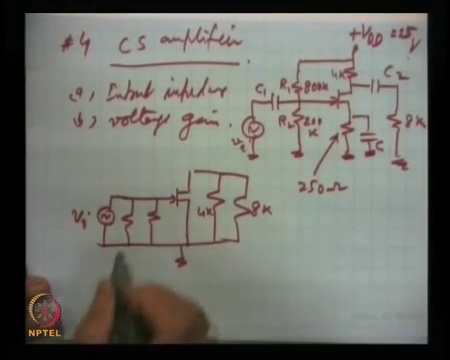 #4 CS amplifier
a, Input impedance
b, voltage gain.
+VDD = 25V
4K
C1
R1
800K
C2
R2
200
K
8K
Vi
C
250Ω
Vi
4K
8K
NPTEL